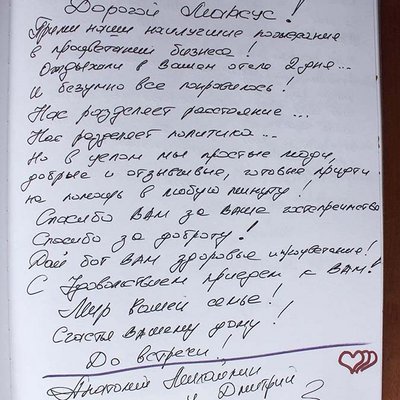 Дорогой Маркус!
Прими наши наилучшие пожелания
в процветании бизнеса!
Отдыхали в Вашем отеле 2 дня...
И безумно все понравилось!
Нас разделяет расстояние...
Нас разделяет политика...
Но в целом мы простые люди,
добрые и отзывчивые, готовые придти
на помощь в любую минуту!
Спасибо ВАМ за ваше гостеприимство
Спасибо за доброту!
Дай бог ВАМ здоровья и процветания!
С Удовольствием приедем к ВАМ!
Мир вашей семье!
Счастья вашему дому!
До встречи!
Анатолий
и Дмитрий